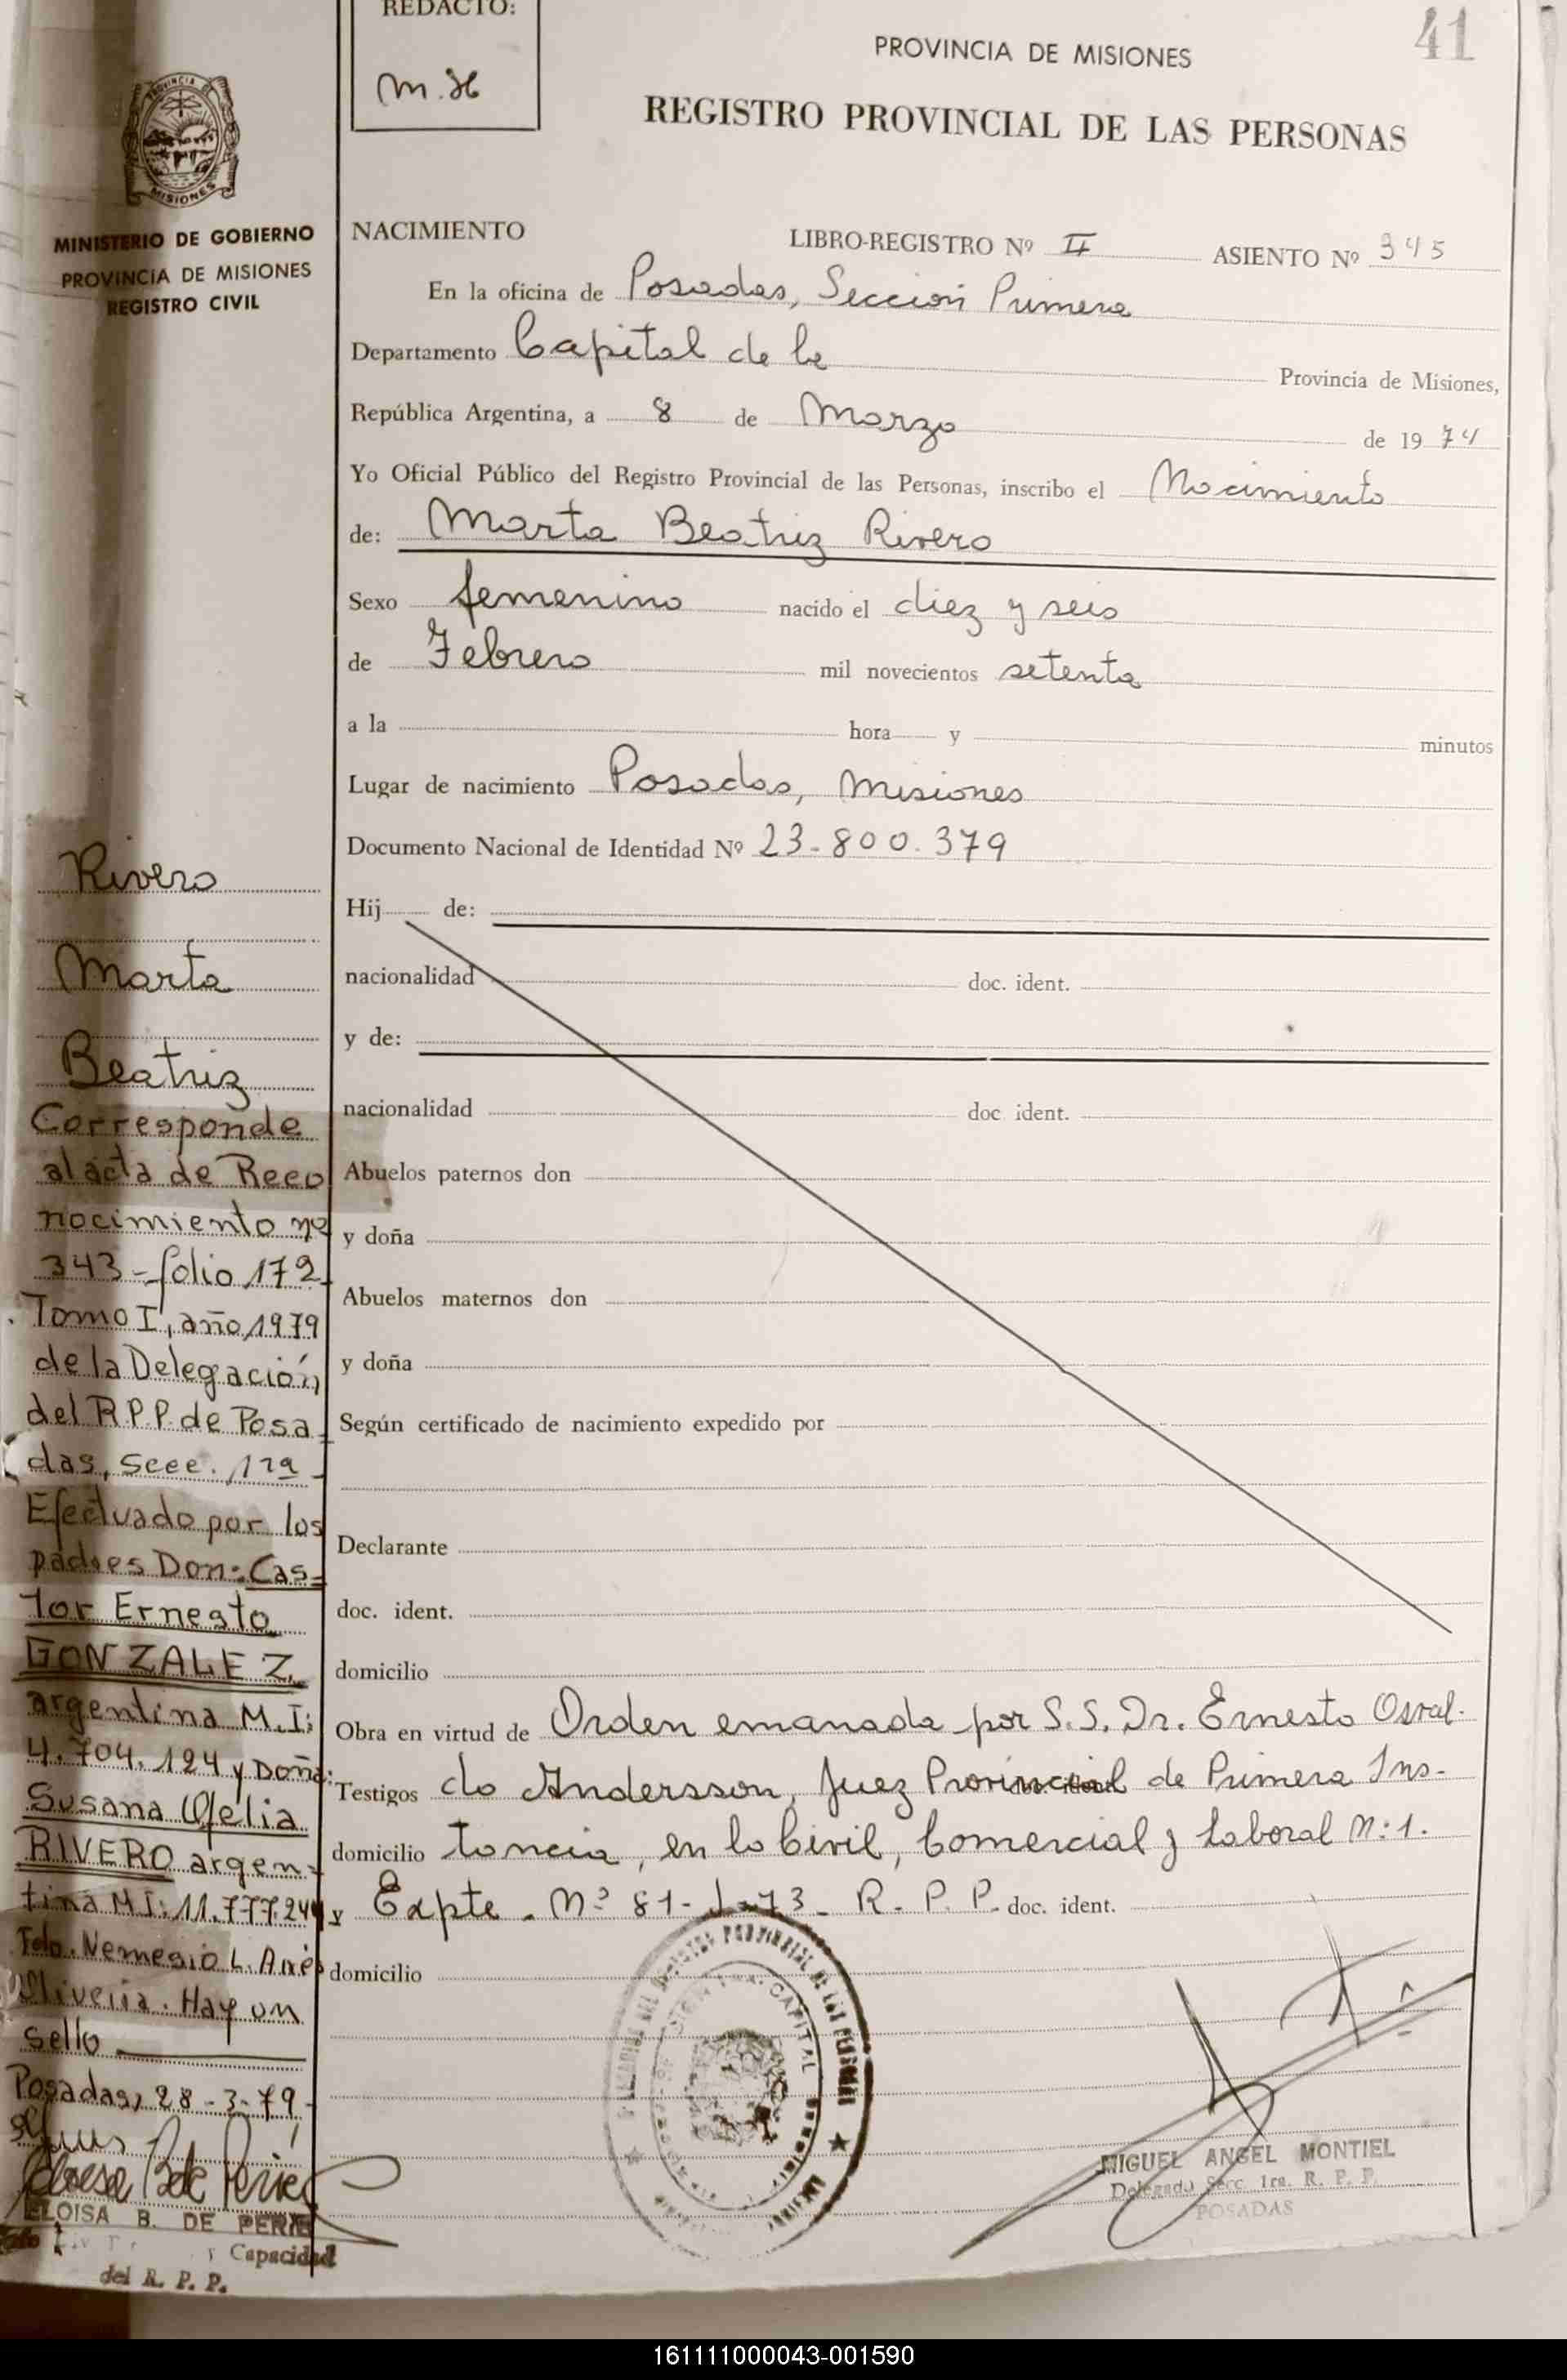 REDACTO:
m.H
41
PROVINCIA DE MISIONES
REGISTRO PROVINCIAL DE LAS PERSONAS
PROVINCIA DE
MISIONES
MINISTERIO DE GOBIERNO
PROVINCIA DE MISIONES
REGISTRO CIVIL
NACIMIENTO LIBRO-REGISTRO Nº II ASIENTO Nº 345
En la oficina de Posadas, Sección Primera
Departamento Capital de la Provincia de Misiones,
República Argentina, a 8 de Marzo de 1974
Yo Oficial Público del Registro Provincial de las Personas, inscribo el Nacimiento
de: Marta Beatriz Rivero
Sexo femenino nacido el diez y seis
de Febrero mil novecientos setenta
a la hora y minutos
Lugar de nacimiento Posadas, Misiones
Documento Nacional de Identidad Nº 23-800.379
Hij de:
nacionalidad doc. ident.
y de:
nacionalidad doc ident.
Abuelos paternos don
y doña
Abuelos maternos don
y doña
Según certificado de nacimiento expedido por
Declarante
doc. ident.
domicilio
Obra en virtud de Orden emanada por S.S. Dr. Ernesto Osval-
Testigos do Andersson, Juez Provincial de Primera Ins-
domicilio tancia, en lo Civil, Comercial y Laboral Nº 1.
y Expte. Nº 81-L-73- R. P. P. doc. ident.
domicilio
Rivero
Marta
Beatriz
Corresponde
al acta de Reco
nocimiento nº
343-folio 172
Tomo I, año 1979
de la Delegación
del R.P.P. de Posa
das, Secc. 1ra
Efectuado por los
padres Don: Cas-
tor Ernesto
GONZALEZ
argentina M.I:
4.704.124 y Doña:
Susana Ofelia
RIVERO argen-
tina M.I: 11.777.244
Fdo. Nemesio L.
Oliveira. Hay un
Sello
Posadas, 28-3-79
ELOISA B. DE
Capacidad
del R. P. P.
CAPITAL
MIGUEL ANGEL MONTIEL
Delegado Secc. 1ra. R. P. P.
POSADAS
161111000043-001590